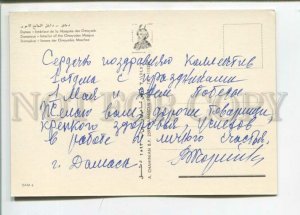 دمشق - داخل الجامع الاموي
Damas - Intérieur de la Mosquée des Omeyades
Damascus - Interior of the Omayades Mosque
Damaskus - Innere der Omayaden Moschee
Сердечно поздравляю коллектив
отдела с праздниками
1 Мая и Днем Победы
Желаю вам, дорогие товарищи,
крепкого здоровья, успехов
в работе и личного счастья.
г. Дамаск